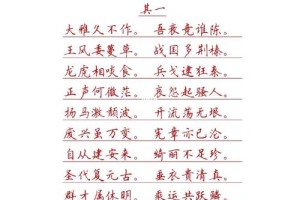 其一
大雅久不作。 吾衰竟谁陈。
王风委蔓草。 战国多荆榛。
龙虎相啖食。 兵戈逮狂秦。
正声何微茫。 哀怨起骚人。
扬马激颓波。 开流荡无垠。
废兴虽万变。 宪章亦已沦。
自从建安来。 绮丽不足珍。
圣代复元古。 垂衣贵清真。
群才属休明。 乘运共跃鳞。